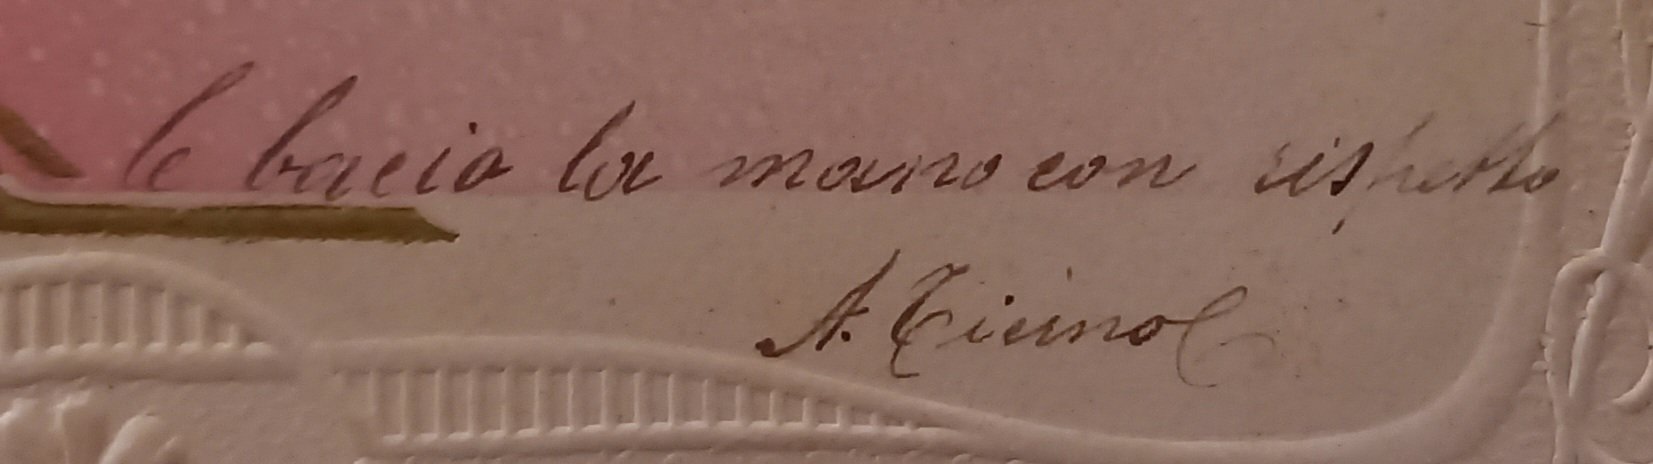 le bacio la mano con rispetto
A. Ticino